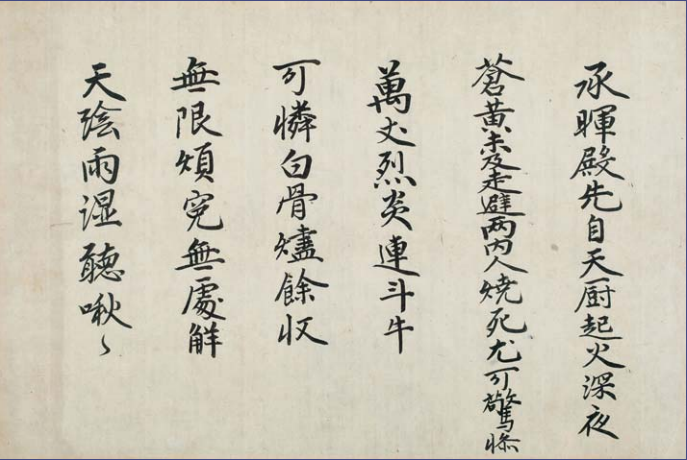 承暉殿先自天厨起火深夜
蒼黄未及走避两内人焼死尤可驚惨
萬丈烈炎連斗牛
可憐白骨燼餘収
無限煩冤無處解
天陰雨湿聴啾〻